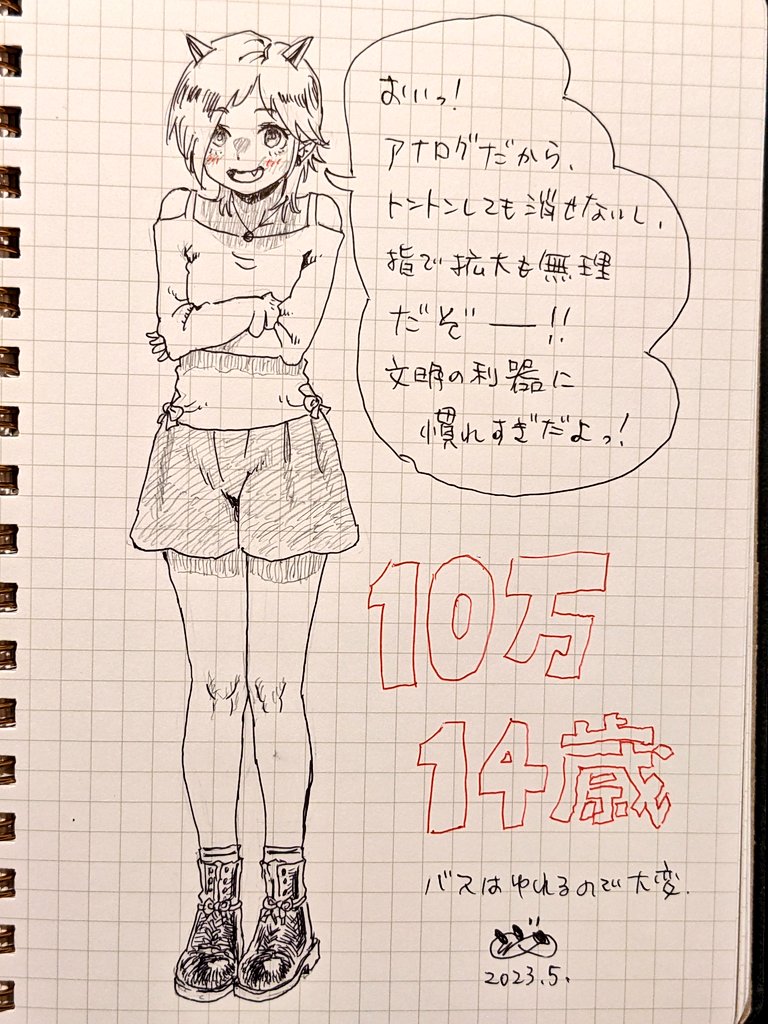 おいっ!
アナログだから、
トントンしても消せないし、
指で拡大も無理
だぞー!!
文明の利器に
慣れすぎだよっ!
10万
14歳
バスはゆれるので大変.
2023.5.